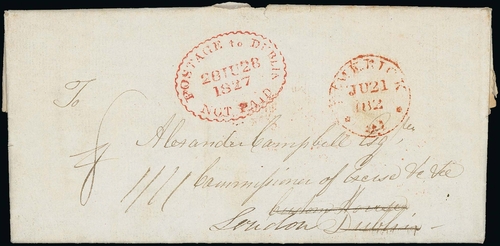 POSTAGE to DUBLIN
28 IU 28
1827
NOT PAID
LIMERICK
JU 21
To
Alexander Campbell Esqr
Commissioner of Excise &c &c
Custom House
London Dublin